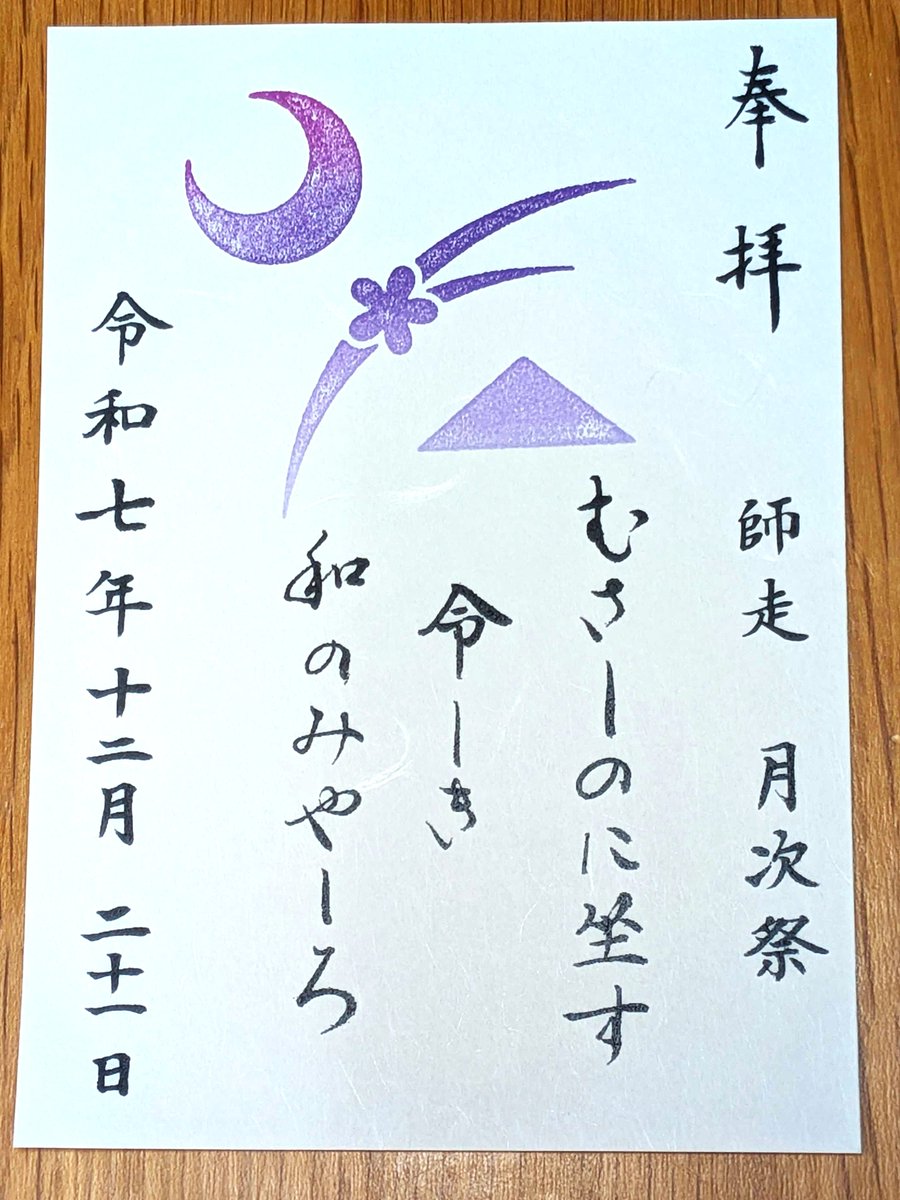 奉拝
師走 月次祭
むさしのに坐す
令しき
和のみやしろ
令和七年十二月 二十一日